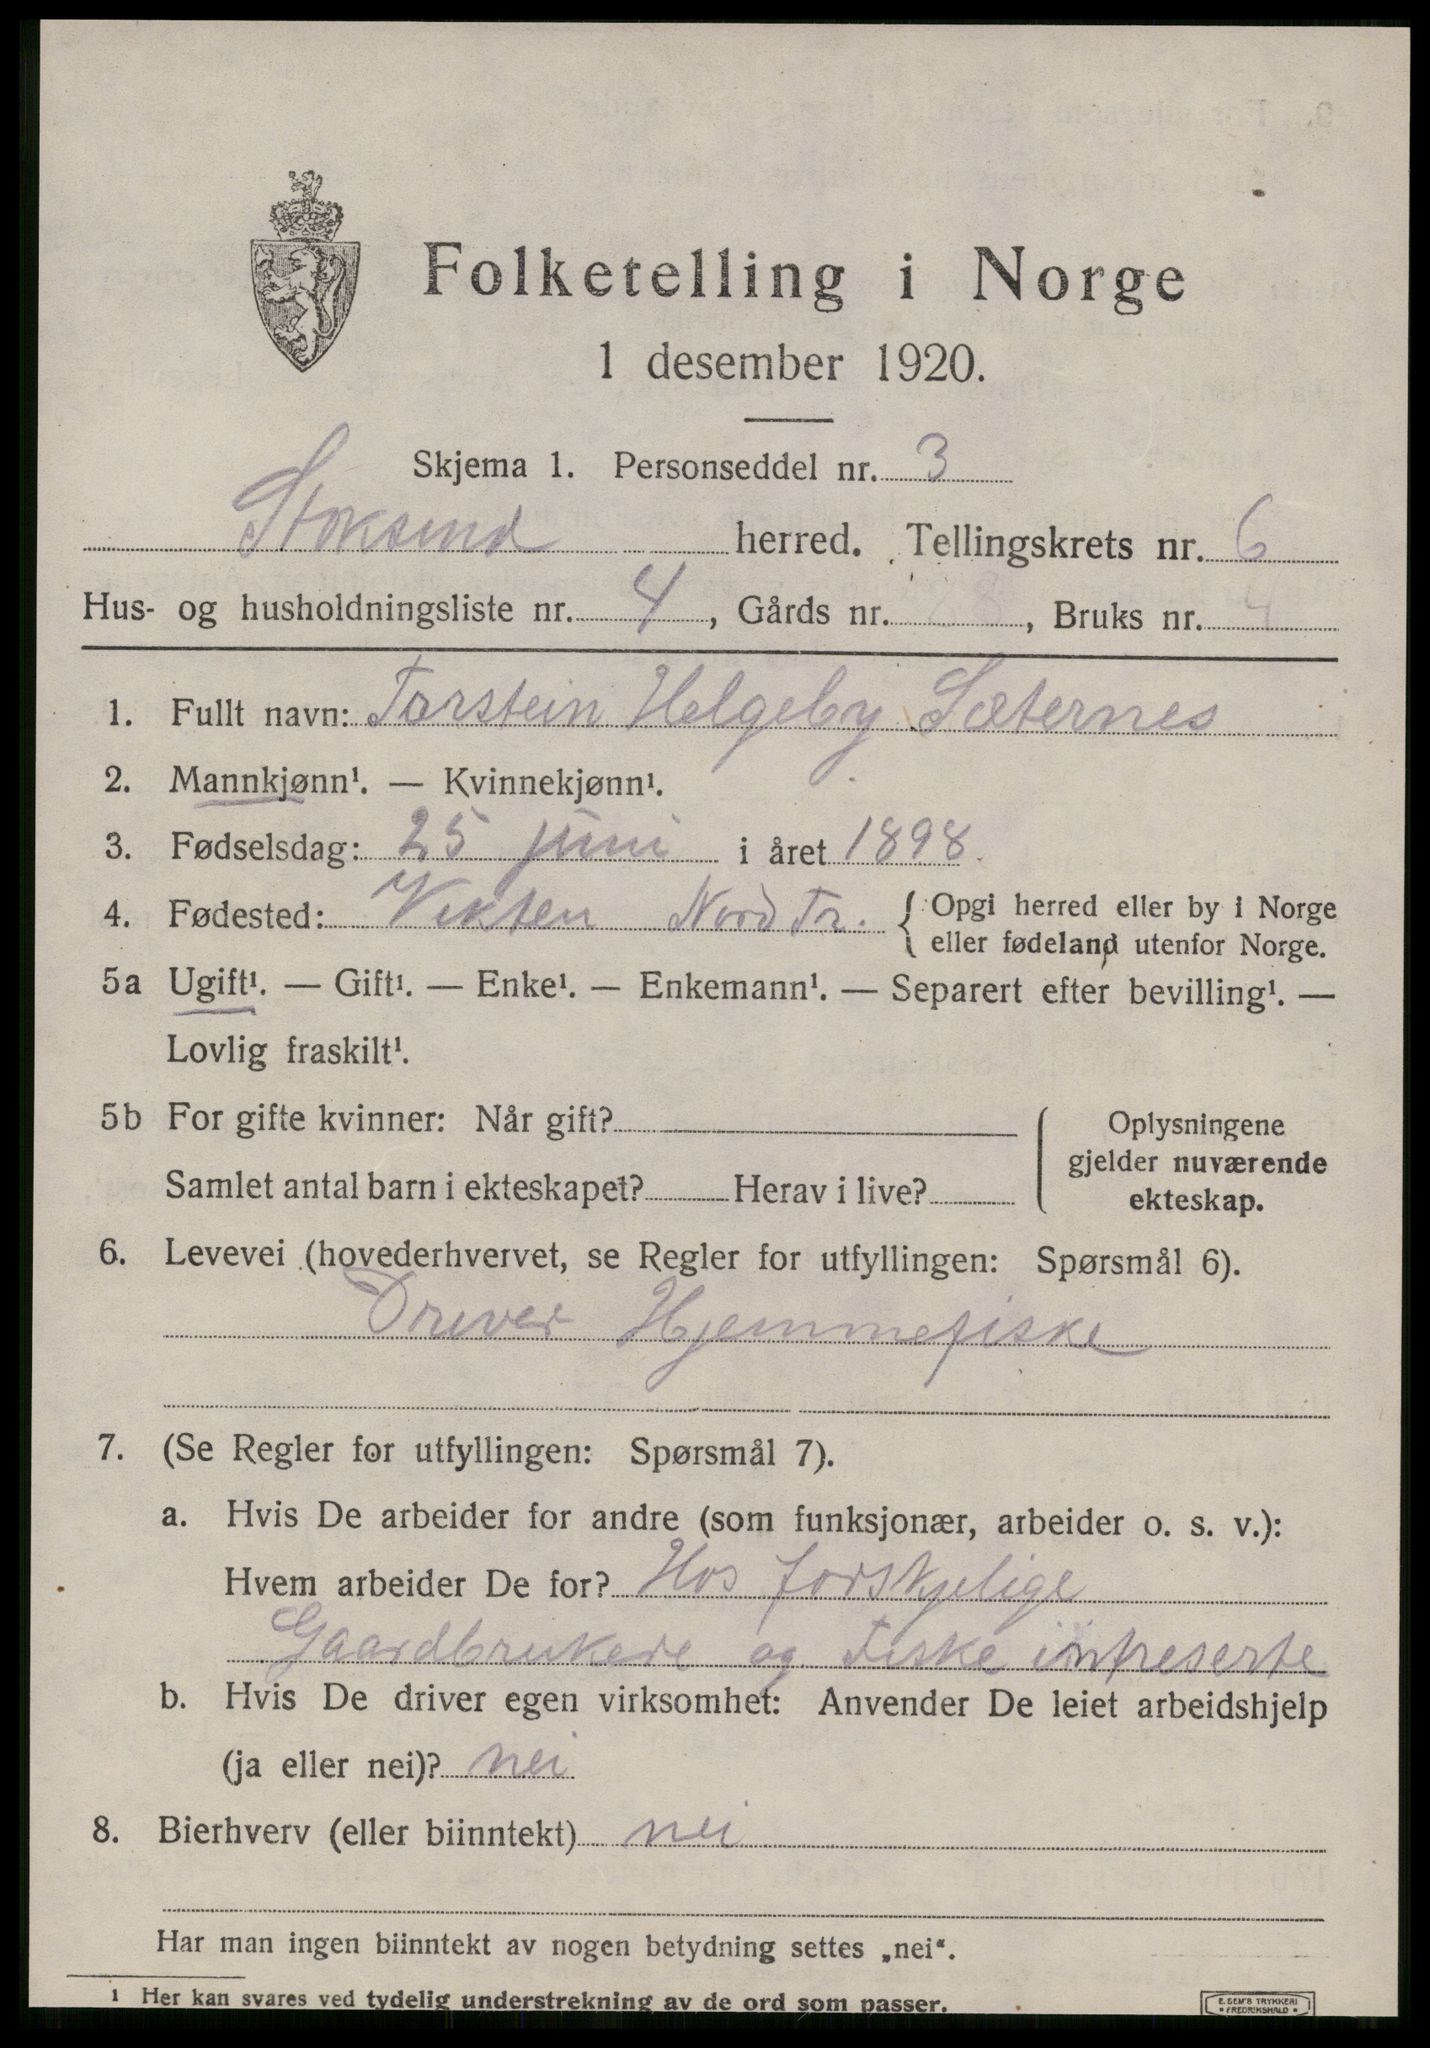 Folketelling i Norge
1 desember 1920.
Skjema 1. Personseddel nr. 3
Stoksund herred. Tellingskrets nr. 6
Hus- og husholdningsliste nr. 4, Gårds nr. 28, Bruks nr. 4
1. Fullt navn: Torstein Helgeby Sæternes
2. Mannkjønn¹. — Kvinnekjønn¹.
3. Fødselsdag: 25 juni i året 1898.
4. Fødested: Vikten Nord Tr. { Opgi herred eller by i Norge
eller fødeland utenfor Norge.
5a Ugift¹. — Gift¹. — Enke¹. — Enkemann¹. — Separert efter bevilling¹. —
Lovlig fraskilt¹.
5b For gifte kvinner: Når gift?
Samlet antal barn i ekteskapet? Herav i live?
Oplysningene
gjelder nuværende
ekteskap.
6. Levevei (hovederhvervet, se Regler for utfyllingen: Spørsmål 6).
Driver Hjemmefiske
7. (Se Regler for utfyllingen: Spørsmål 7).
a. Hvis De arbeider for andre (som funksjonær, arbeider o. s. v.):
Hvem arbeider De for? Hos forskjelige
Gaardbrukere og Fiske intreserte
b. Hvis De driver egen virksomhet: Anvender De leiet arbeidshjelp
(ja eller nei)? nei
8. Bierhverv (eller biinntekt) nei
Har man ingen biinntekt av nogen betydning settes „nei“.
¹ Her kan svares ved tydelig understrekning av de ord som passer.
E. SEM'S TRYKKERI
• FREDRIKSHALD •